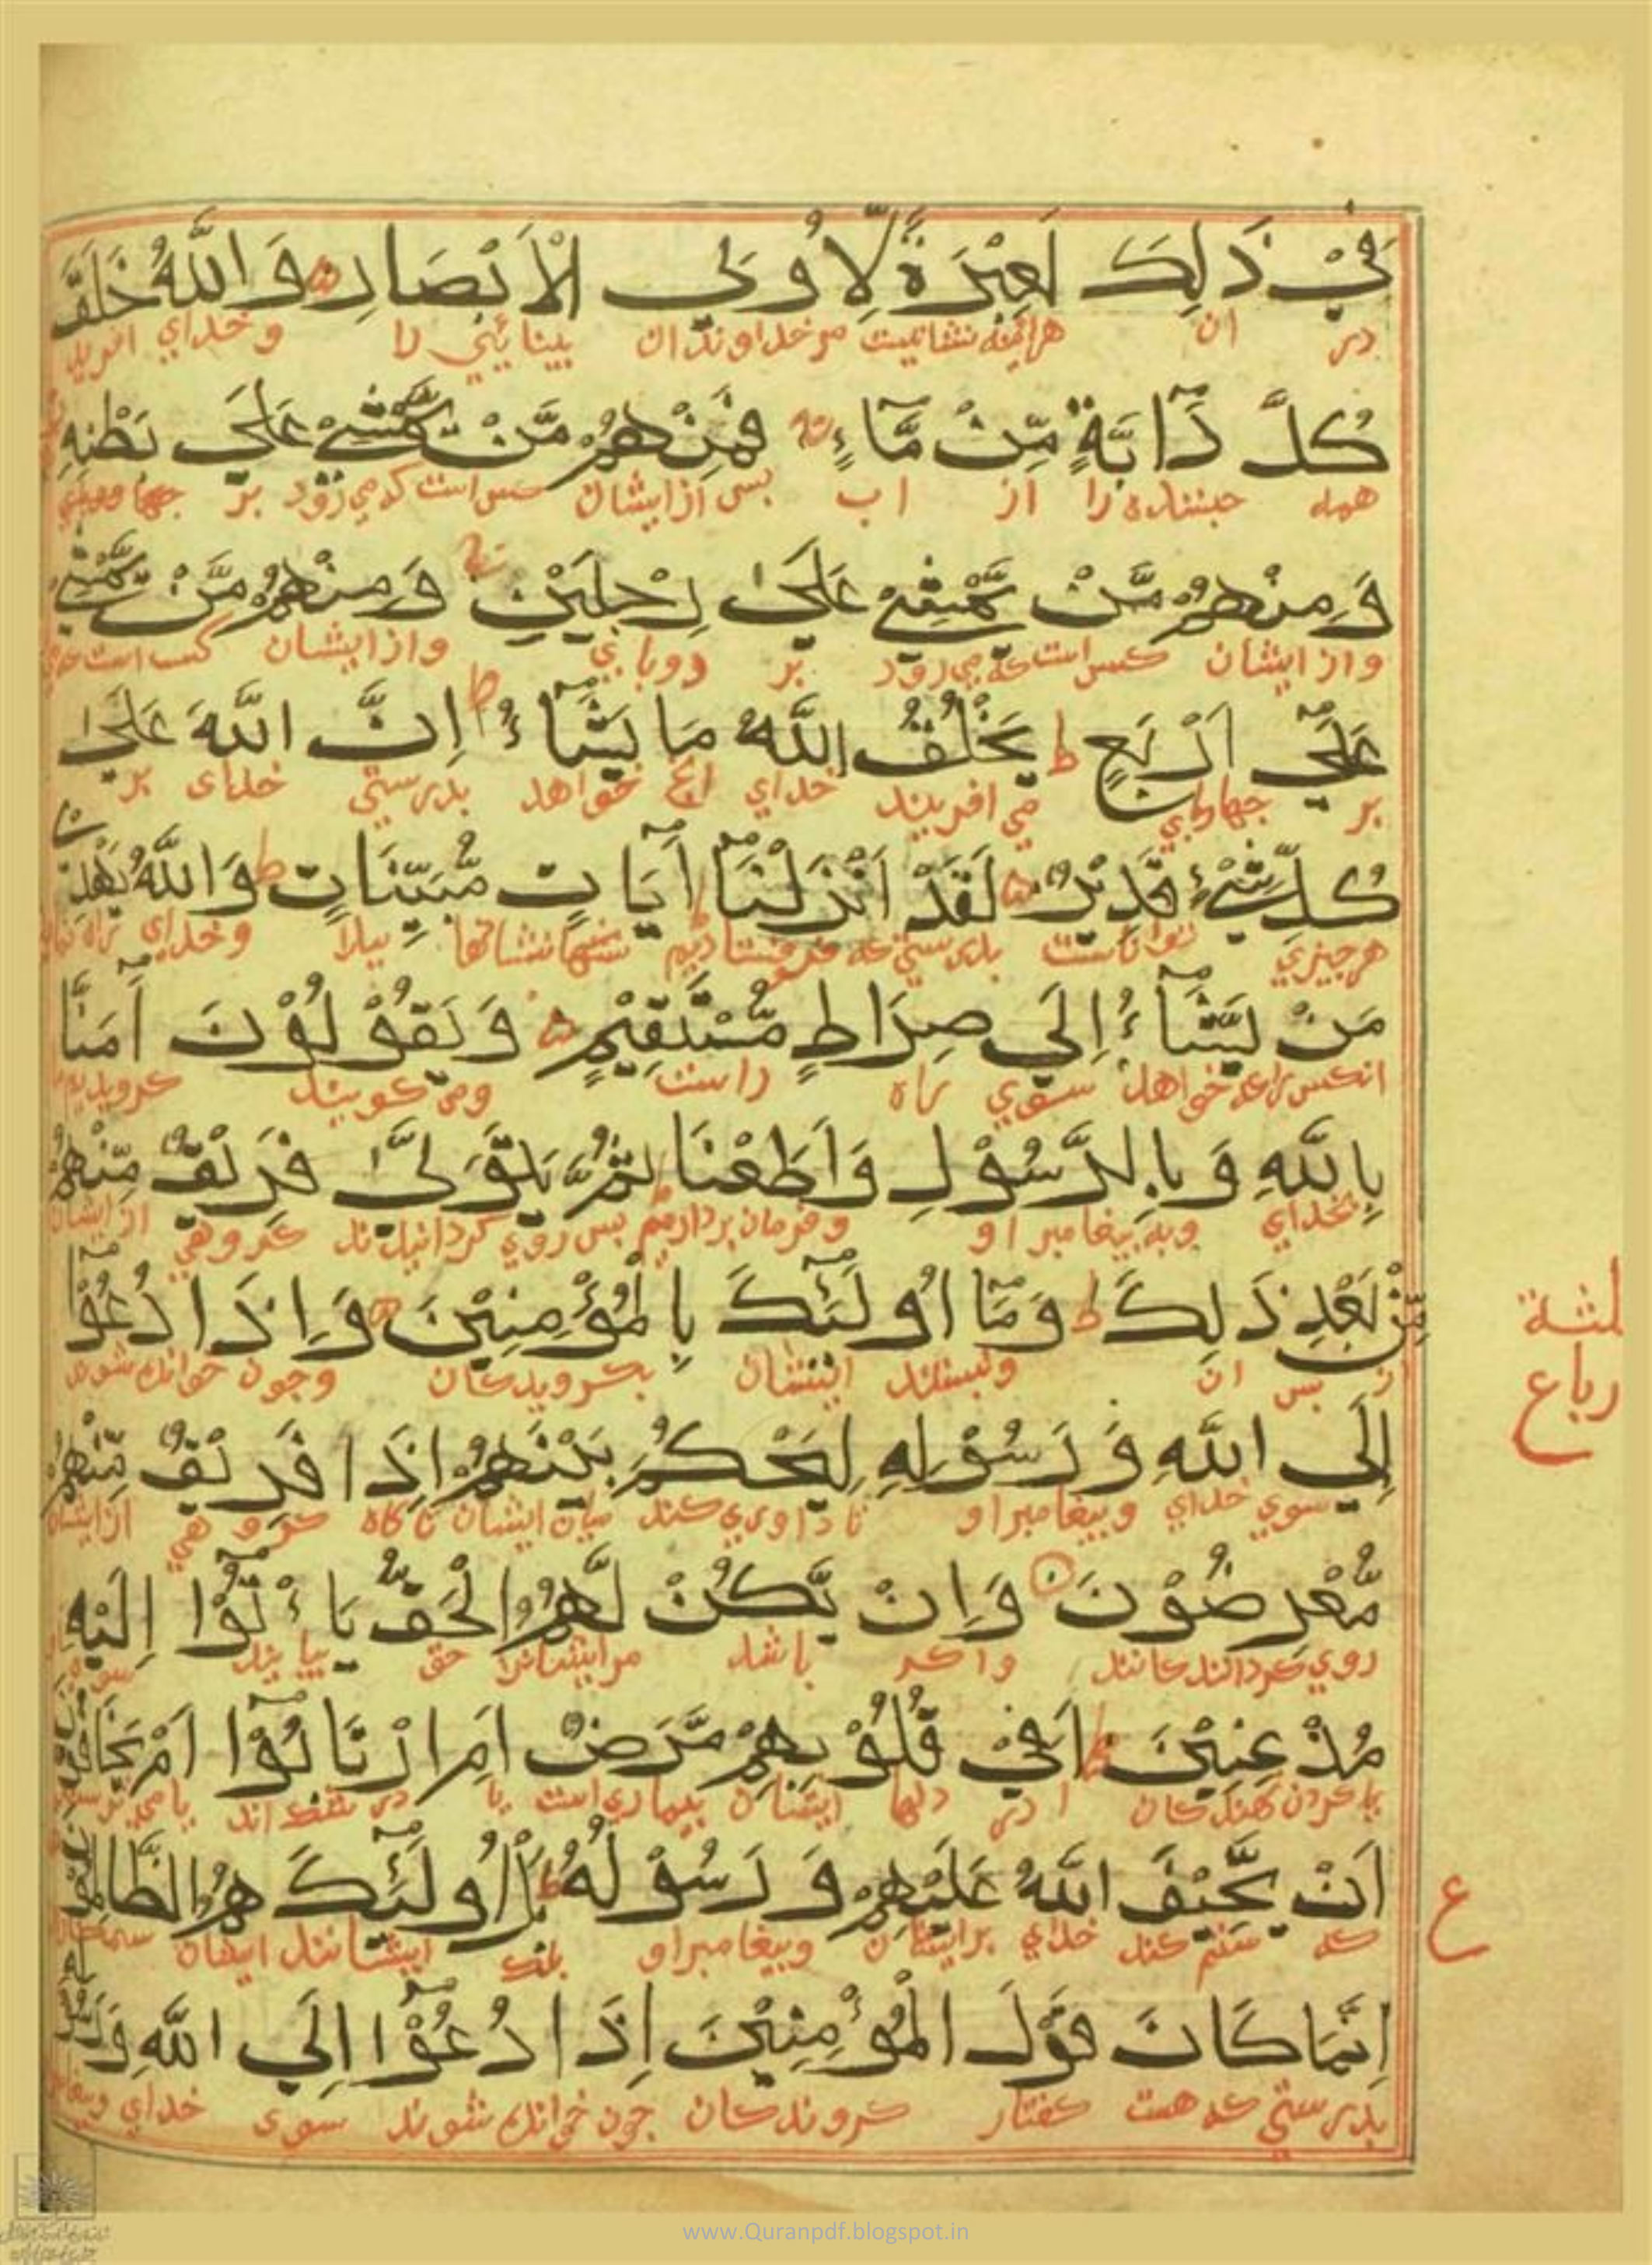 فِيْ ذَلِكَ لَعِبْرَةً لِّاُولِي الْاَبْصَارِ وَاللَّهُ خَلَقَ
در ان هراينه نشانيست مر خداوندان بينايئي را وخداي افريد
كُلَّ دَآبَّةٍ مِّنْ مَّآءٍ فَمِنْهُمْ مَّنْ يَّمْشِيْ عَلَى بَطْنِهِ
همه جنبنده را از اب بس ازايشان كس است كه مي رود بر
وَمِنْهُمْ مَّنْ يَّمْشِيْ عَلَى رِجْلَيْنِ وَمِنْهُمْ مَّنْ يَّمْشِيْ
وازايشان كس است كه مي رود بر دوباي وازايشان كس است
عَلَى اَرْبَعٍ ط يَخْلُقُ اللَّهُ مَا يَشَآءُ ط اِنَّ اللَّهَ عَلَى
بر جهارباي مي افريند خداي انج خواهد بدرستي خداى بر
كُلِّ شَيْءٍ قَدِيْرٌ لَقَدْ اَنْزَلْنَآ آيَاتٍ مُّبَيِّنَاتٍ ط وَاللَّهُ يَهْدِيْ
هرجيزي تواناست بدرستي كه فروفرستاديم نشانها بيدا وخداي راه نمايد
مَنْ يَّشَآءُ اِلَى صِرَاطٍ مُّسْتَقِيْمٍ وَيَقُوْلُوْنَ آمَنَّا
انكس را كه خواهد سوي راه راست ومي كويند كرويديم
بِاللَّهِ وَبِالرَّسُوْلِ وَاَطَعْنَا ثُمَّ يَتَوَلَّى فَرِيْقٌ مِّنْهُمْ
بخداي وبه بيغامبر او وفرمان برداريم بس روي كردانيدند كروهي ازايشان
مِّنْ بَعْدِ ذَلِكَ ط وَمَآ اُولَئِكَ بِالْمُؤْمِنِيْنَ وَاِذَا دُعُوْآ
از بس ان ونيستند ايشان بكرويدكان وجون خوانده شوند
ثلثة
ارباع
اِلَى اللَّهِ وَرَسُوْلِهِ لِيَحْكُمَ بَيْنَهُمْ اِذَا فَرِيْقٌ مِّنْهُمْ
سوي خداي وبيغامبر او تا داوري كند ميان ايشان ناكاه كروهي ازايشان
مُّعْرِضُوْنَ وَاِنْ يَّكُنْ لَّهُمُ الْحَقُّ يَاْتُوْآ اِلَيْهِ
روي كردانندكانند واكر باشد مرايشانرا حق بيايند سوي
مُذْعِنِيْنَ ط اَفِيْ قُلُوْبِهِمْ مَّرَضٌ اَمِ ارْتَابُوْآ اَمْ يَخَافُوْنَ
ا در دلهاء ايشان بيماري است يا در شك اند يا مي ترسند
اَنْ يَّحِيْفَ اللَّهُ عَلَيْهِمْ وَرَسُوْلُهُ ط بَلْ اُولَئِكَ هُمُ الظَّالِمُوْنَ
كه ستم كند خداي برايشان وبيغامبر او بلك ايشانند ايشان ستمكاران
ع
اِنَّمَا كَانَ قَوْلَ الْمُؤْمِنِيْنَ اِذَا دُعُوْآ اِلَى اللَّهِ وَرَسُوْلِهِ
بدرستي كه هست كفتار كروندكان جون خوانده شوند سوي خداي وبيغامبر
www.Quranpdf.blogspot.in